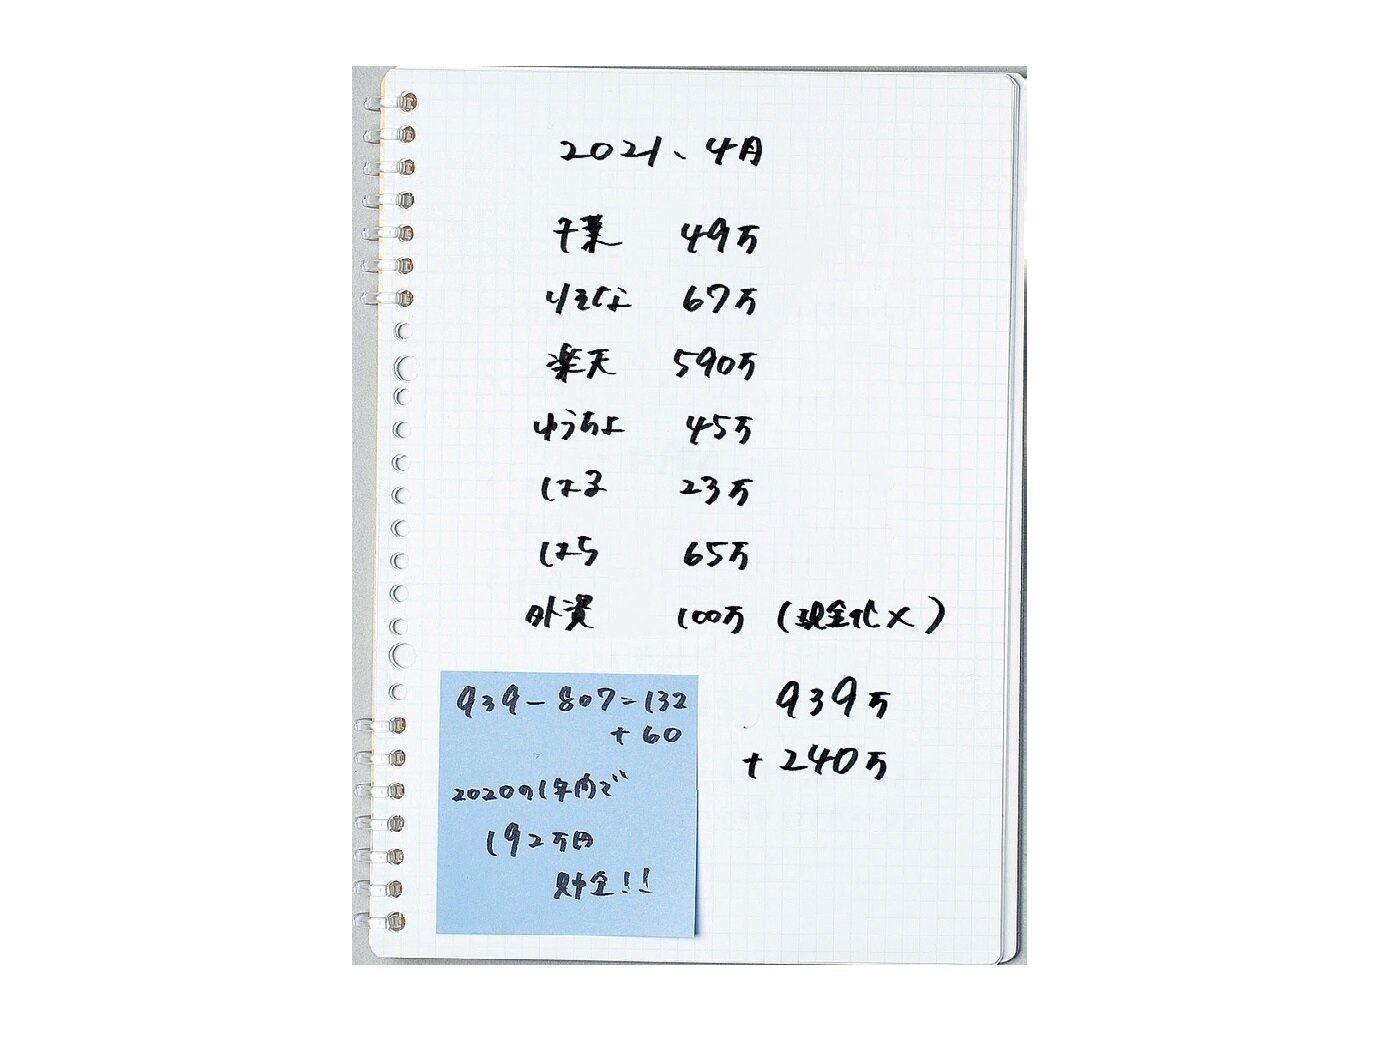 2021、4月
千葉 49万
りそな 67万
楽天 590万
ゆうちょ 45万
はる 23万
はら 65万
外資 100万 (現金化×)
939万
+240万
939-807=132
+60
2020の1年間で
192万円
貯金!!